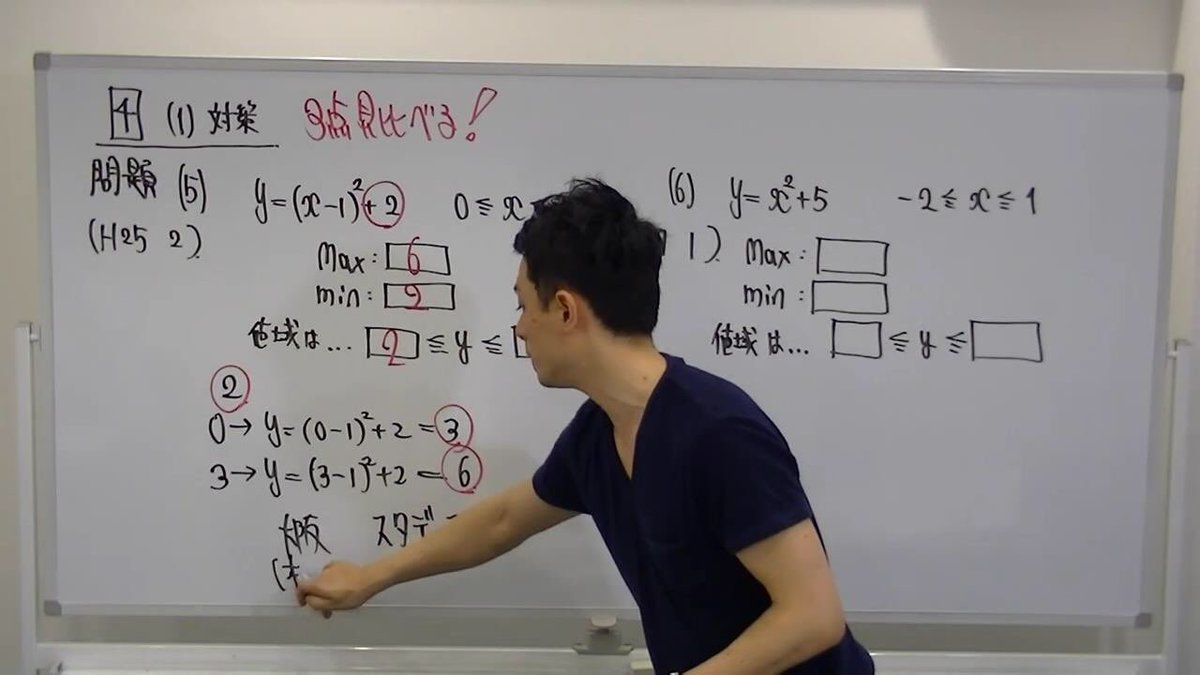 4 (1) 対策 3点見比べる!
問題 (5) y=(x-1)²+2 0≦x
(H25 2)
Max: 6
min: 2
値域は… 2 ≦ y ≦
2
0→ y=(0-1)²+2=3
3→ y=(3-1)²+2=6
大阪 スタデ
(6) y=x²+5 -2≦x≦1
1)
Max:
min:
値域は… ≦ y ≦